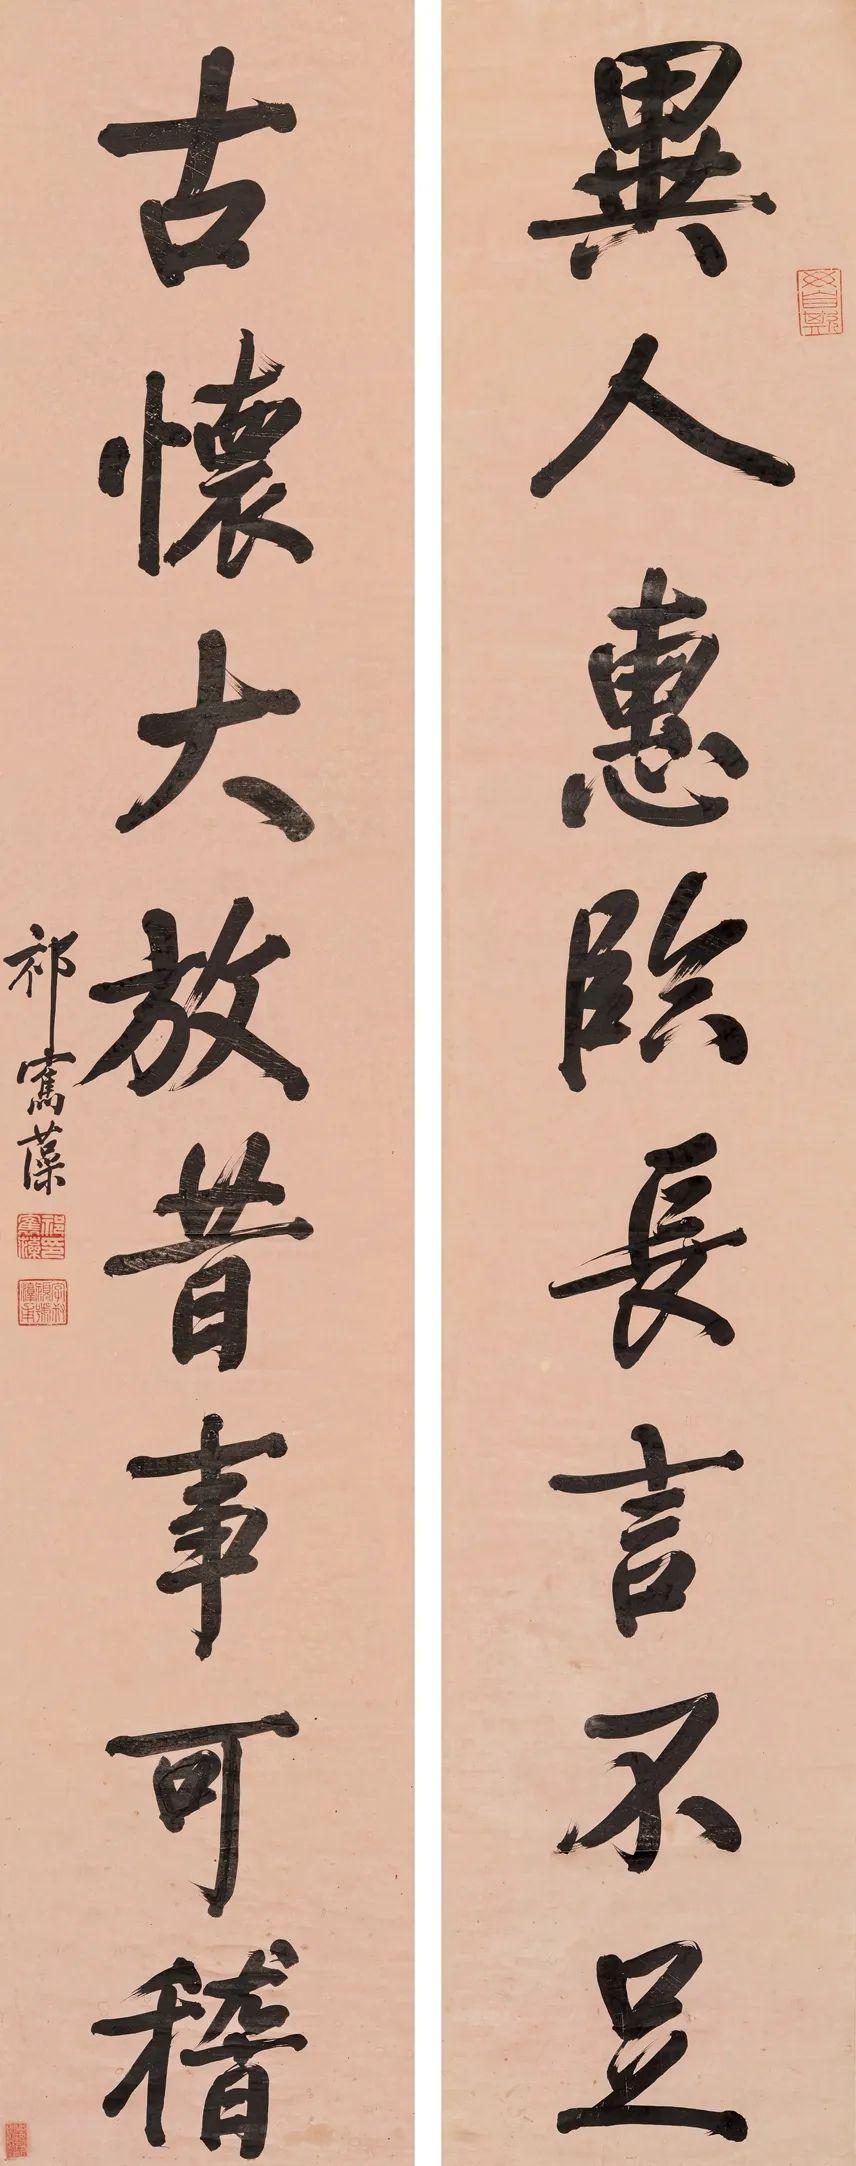 異人惠臨長言不足
古懷大放昔事可稽
祁寯藻